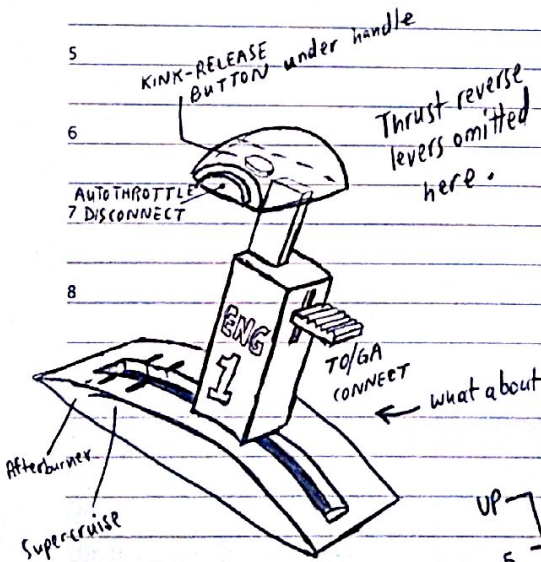 5
KINK-RELEASE
BUTTON under handle
6
Thrust reverse
levers omitted
here.
AUTOTHROTTLE
7 DISCONNECT
8
ENG
1
TO/GA
CONNECT
← what about
Afterburner
Supercruise
UP
5